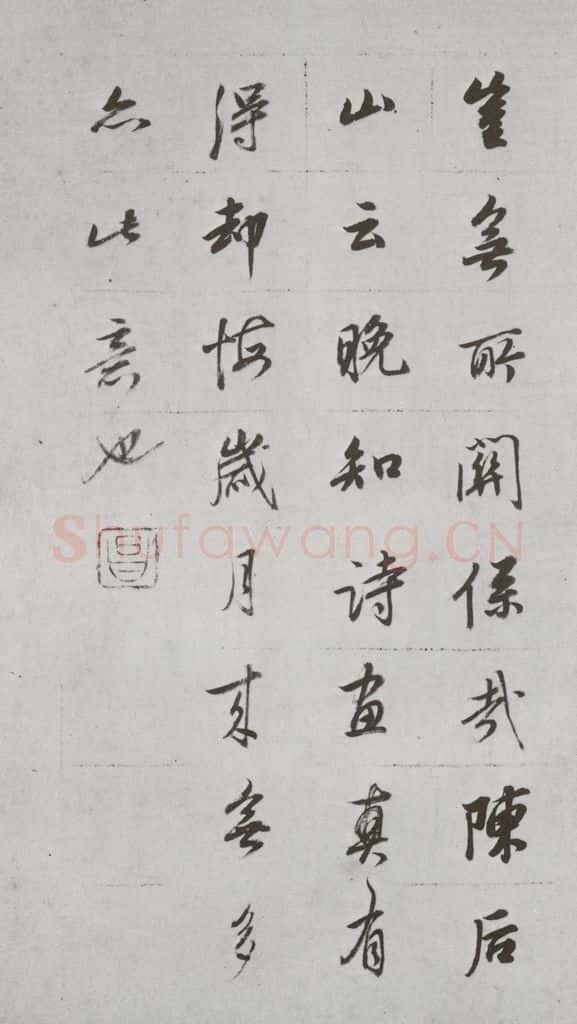 豈無所關係哉陳后
山云晚知詩畫真有
得却悔歲月来無多
亦此意也
昌
Shufawang.CN